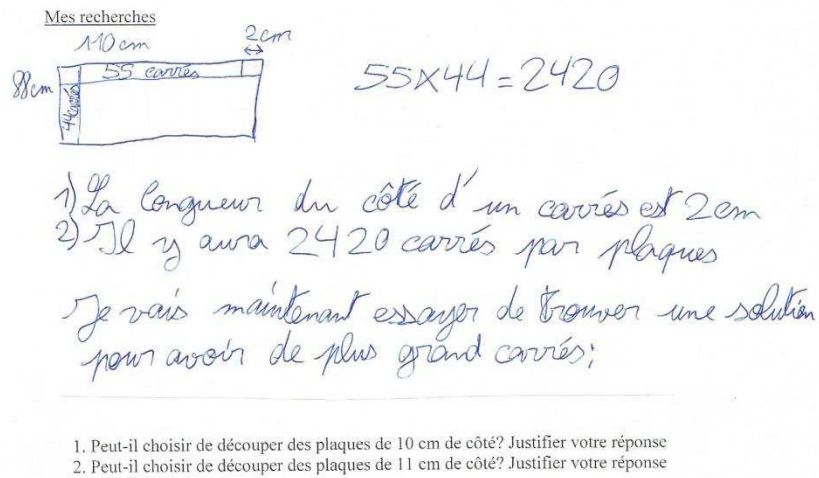 Mes recherches
110 cm
2cm
88cm
55 carrés
44 carrés
55×44=2420
1) La longueur du côté d'un carrés est 2cm
2) Il y aura 2420 carrés par plaques
Je vais maintenant essayer de trouver une solution
pour avoir de plus grand carrés;
1. Peut-il choisir de découper des plaques de 10 cm de côté? Justifier votre réponse
2. Peut-il choisir de découper des plaques de 11 cm de côté? Justifier votre réponse